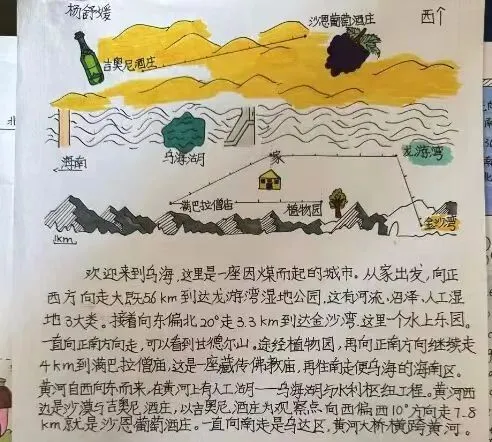 杨舒媛
西个
沙恩葡萄酒庄
吉奥尼酒庄
海南
乌海湖
家
龙游湾
满巴拉僧庙
植物园
金沙湾
1km
欢迎来到乌海，这里是一座因煤而起的城市。从家出发，向正
西方向走大既56km到达龙游湾湿地公园，这有河流，沼泽，人工湿
地3大类。接着向东偏北20°走3.3km到达金沙湾，这里一个水上乐园。
一直向正南方向走，可以看到甘德尔山。途经植物园，再向正南方向继续走
4km到满巴拉僧庙，这是一座藏传佛教庙，再往南走便乌海的海南区。
黄河自西向东而来，在黄河上有人工湖——乌海湖与水利枢纽工程。黄河西
边是沙漠与吉奥尼酒庄，以吉奥尼酒庄为观察点向西偏西10°方向走7.8
km就是沙恩葡萄酒庄。一直向南走是乌达区，黄河大桥横跨黄河。